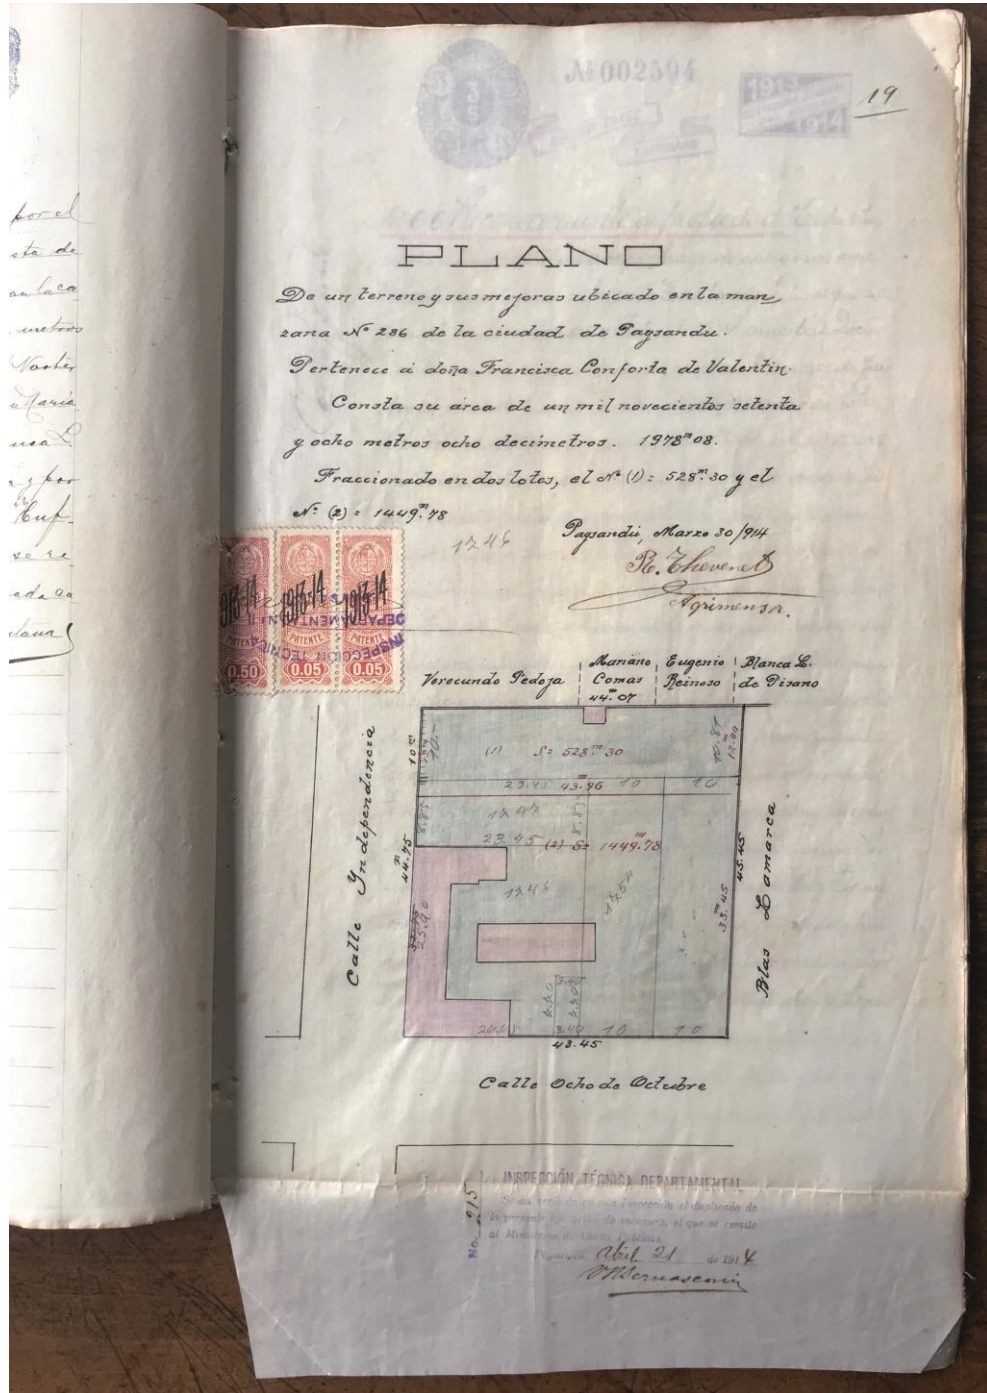 Nº 002594
1913
1914
19
por el
metros
PLANO
De un terreno y sus mejoras ubicado en la man
zana Nº 286 de la ciudad de Paysandu.
Pertenece á doña Francisca Conforta de Valentin.
Consta su area de un mil novecientos setenta
y ocho metros ocho decímetros. 1978m 08.
Fraccionado en dos lotes, el Nº (1) = 528m.30 y el
Nº (2) = 1449m.78
1746
Paysandú, Marzo 30/914
R. Thevenet
Agrimensor.
1913-14 1913-14 1913-14
PATENTE PATENTE PATENTE
0.50 0.05 0.05
INSPECCIÓN TECNICA
DEPARTAMENTAL
Verecundo Pedoja
Mariano
Comas
44m.07
Eugenio
Reinoso
Blanca L.
de Pisano
Calle Independencia
10m
(1) S= 528m.30
10.87
12.00
23.45 43m.96 10 10
8.87
1747
23.45 (2) S= 1449m.78
8.87
44m.75
45.45
1746
1754
25.90
33m.45
Blas Lamarca
3.40
20.05 3.40 10 10
43.45
Calle Ocho de Octubre
INSPECCIÓN TÉCNICA DEPARTAMENTAL
Se ha recibido en esta Inspección el duplicado de
la presente operación de mensura, el que se remite
al Ministerio de Obras Públicas.
Paysandú, Abril 21 de 1914
No. 215